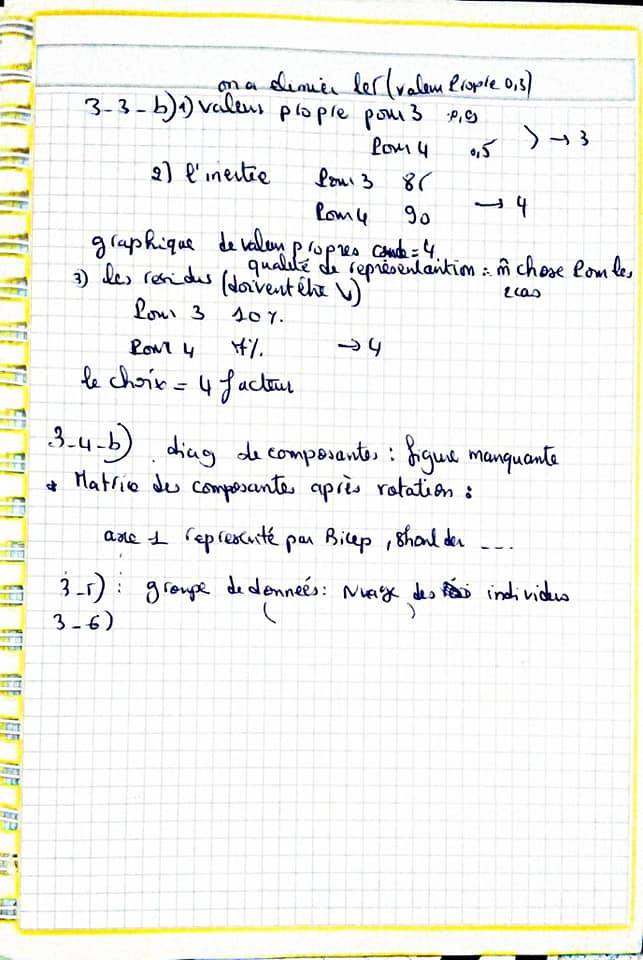 on a éliminer les (valeur Propre 0,3)
3-3-b) 1) valeurs propre pour 3 0,9
Pour 4 0,5 → 3
2) l'inertie Pour 3 85
Pour 4 90 → 4
graphique de valeur propres = 4
qualité de représentation : m̂ chose Pour les 2 cas
3) les residus (doivent être ↓)
Pour 3 10%
Pour 4 7% → 4
le choix = 4 facteur
3-4-b) diag de composantes : figure manquante
* Matrice des composantes après rotation :
axe 1 représenté par Bicep, Shoulder ....
3-5) : groupe de données : Nuage des individus
( )
3-6)